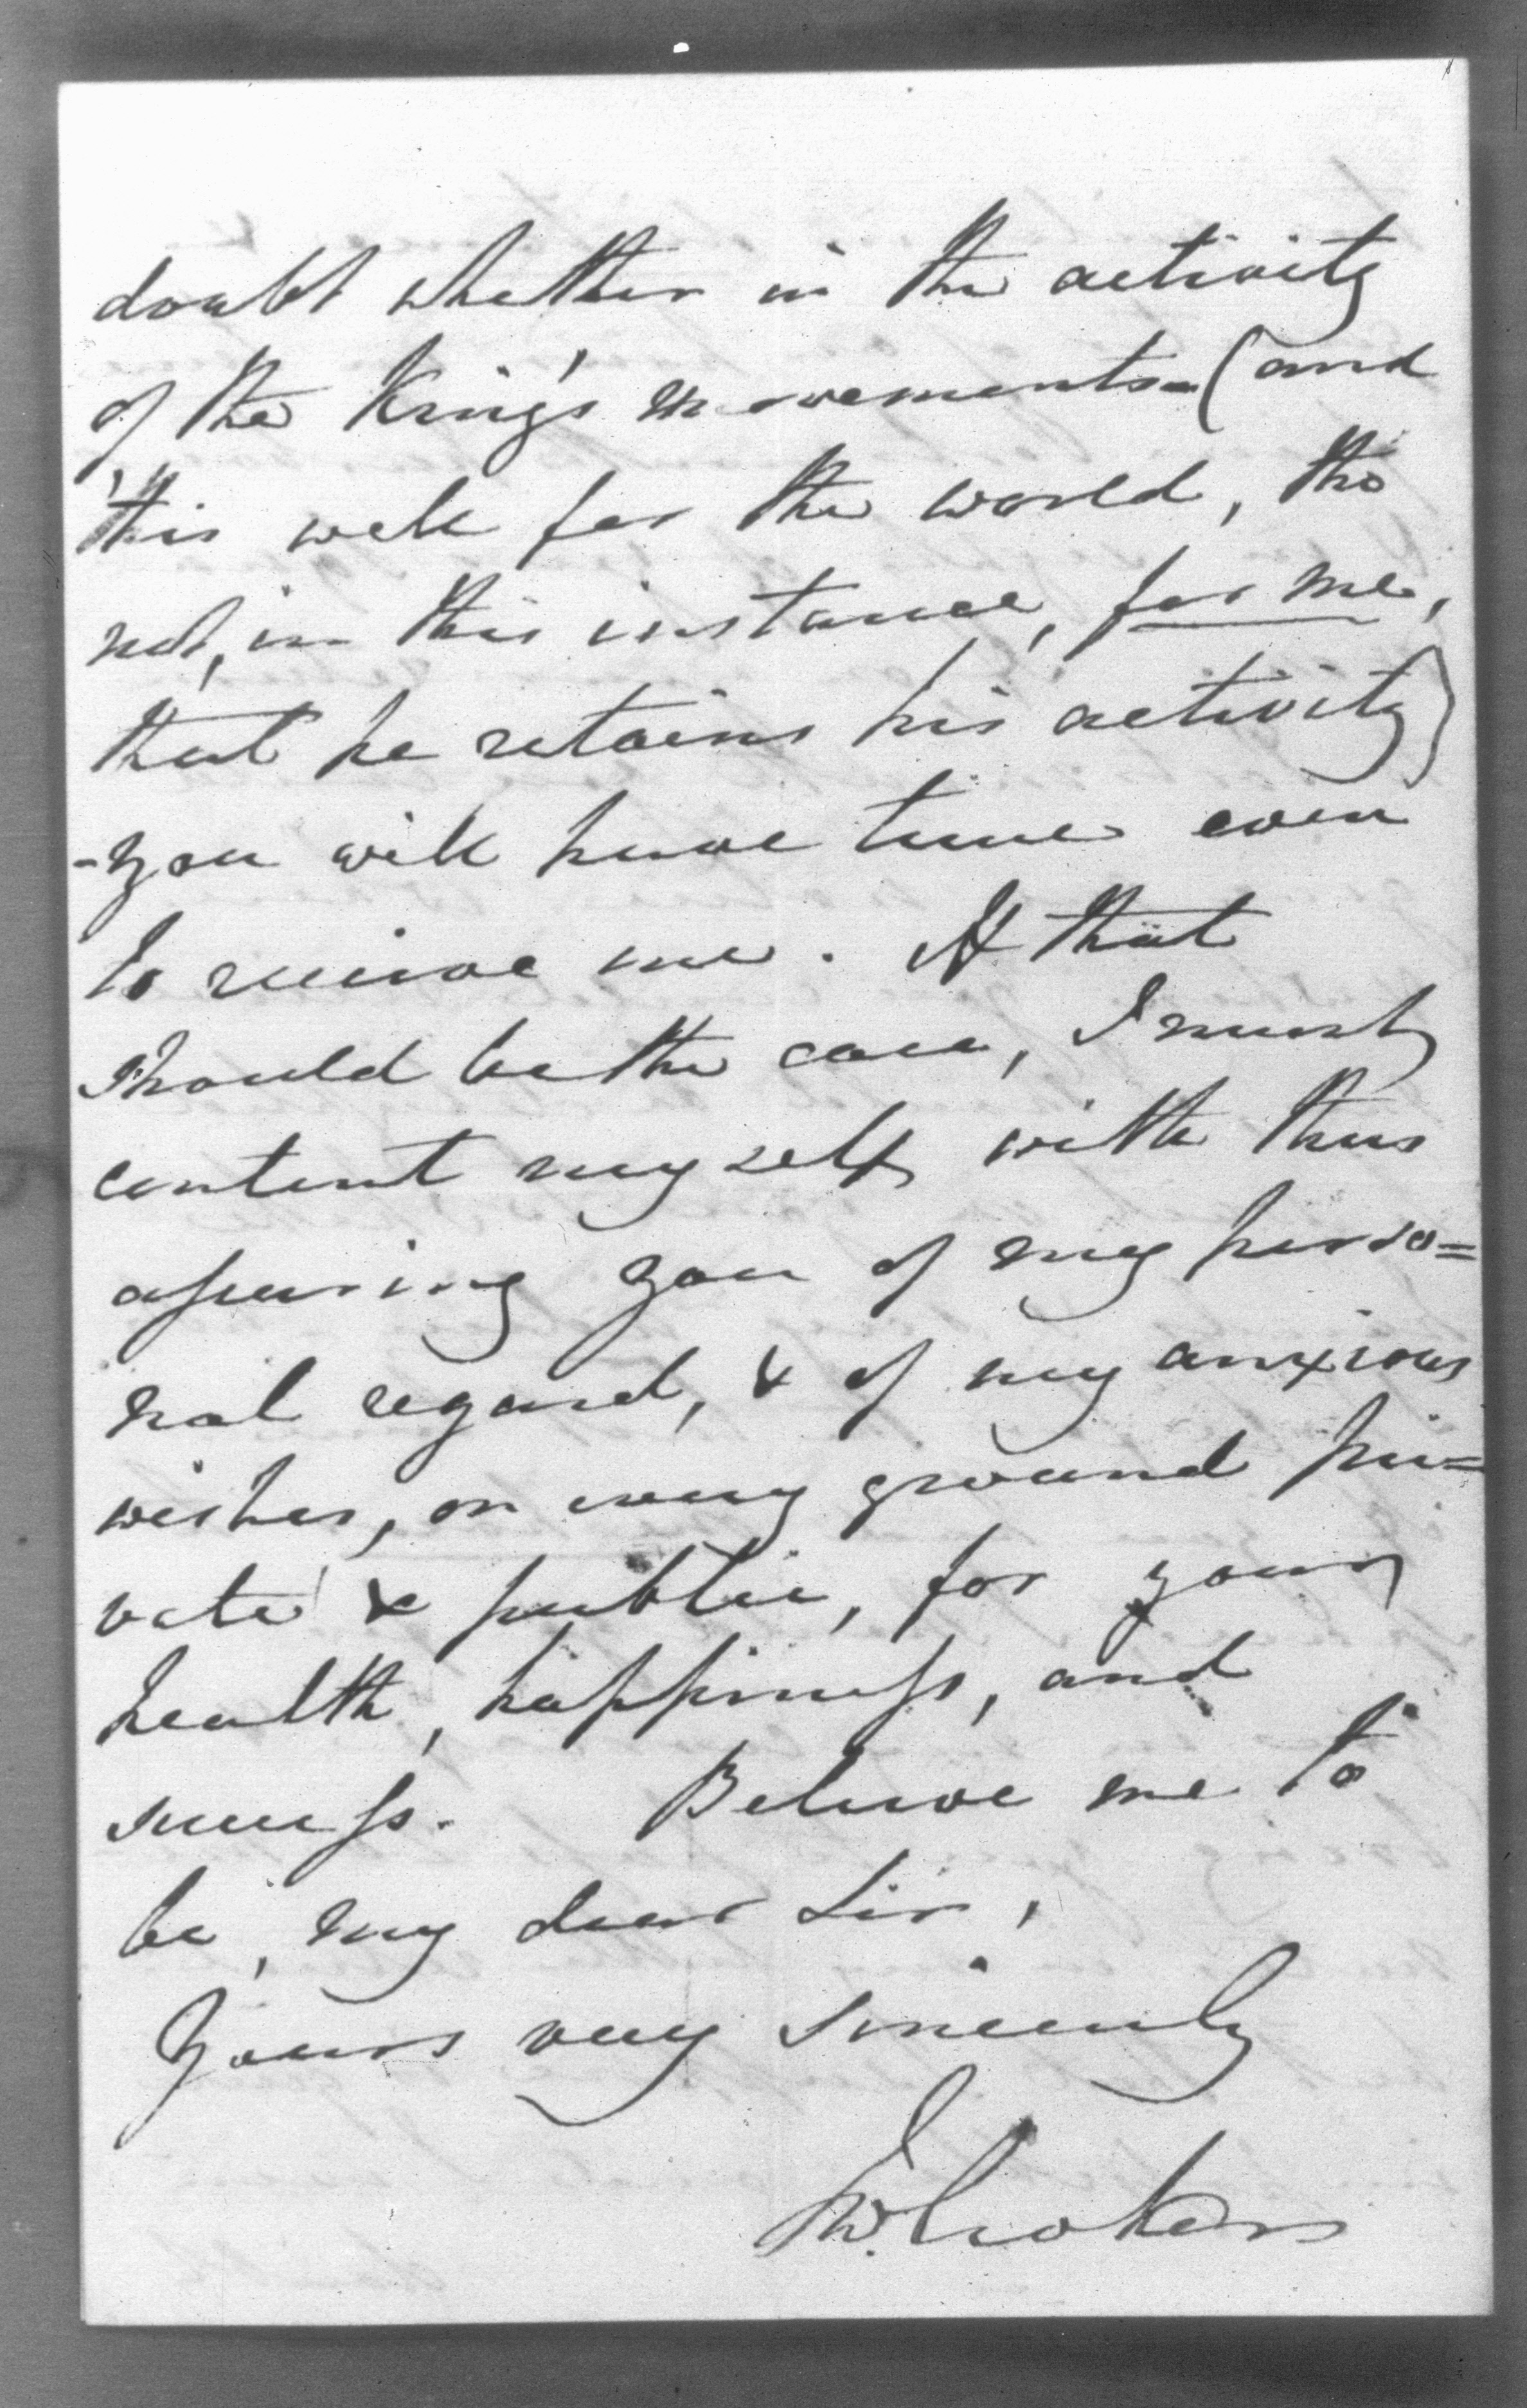 doubt whether in the activity
of the King's movements – (and
'tis well for the world, tho
not, in this instance, for me,
that he retains his activity)
- you will have time even
to receive me. If that
should be the case, I must
content myself with thus
assuring you of my perso=
nal regard, & of my anxious
wishes, on every ground pri=
vate & public, for your
health, happiness, and
success. Believe me to
be, my dear Sir,
Yours very sincerely
JWCroker